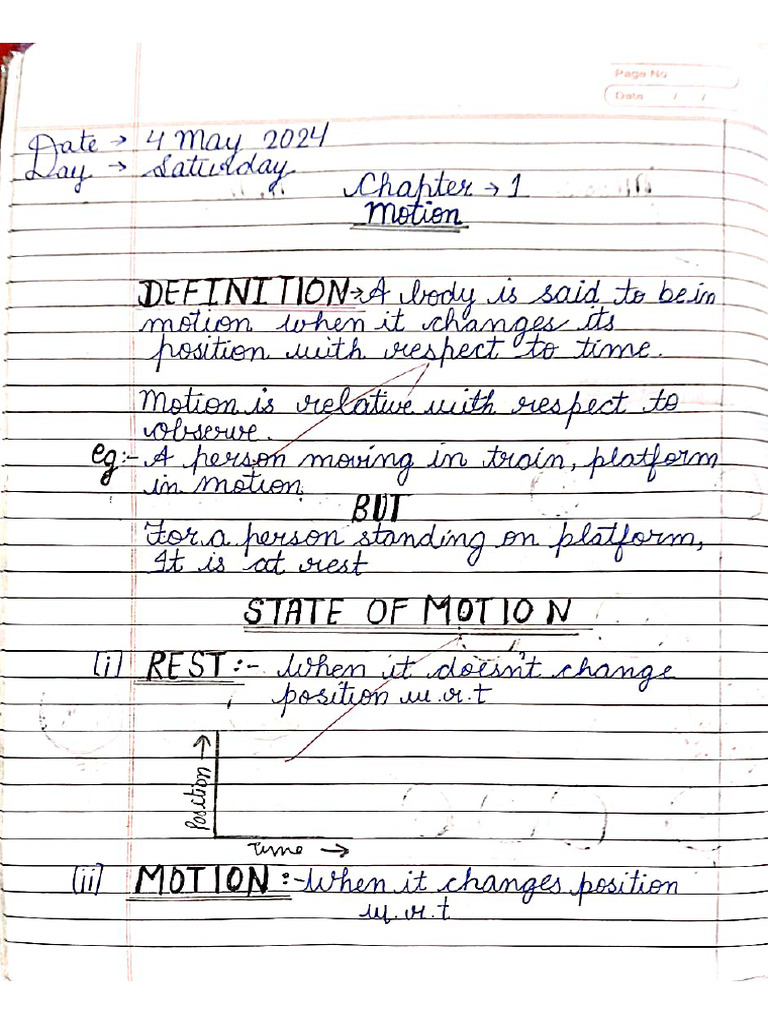 Page No
Date / /
Date → 4 May 2024
Day → Saturday
Chapter → 1
Motion
DEFINITION → A body is said to be in
motion when it changes its
position with respect to time.
Motion is relative with respect to
observe.
eg:- A person moving in train, platform
in motion
BUT
For a person standing on platform,
It is at rest
STATE OF MOTION
(i) REST :- When it doesn't change
position w.r.t
Position →
Time →
(ii) MOTION :- When it changes position
w.r.t